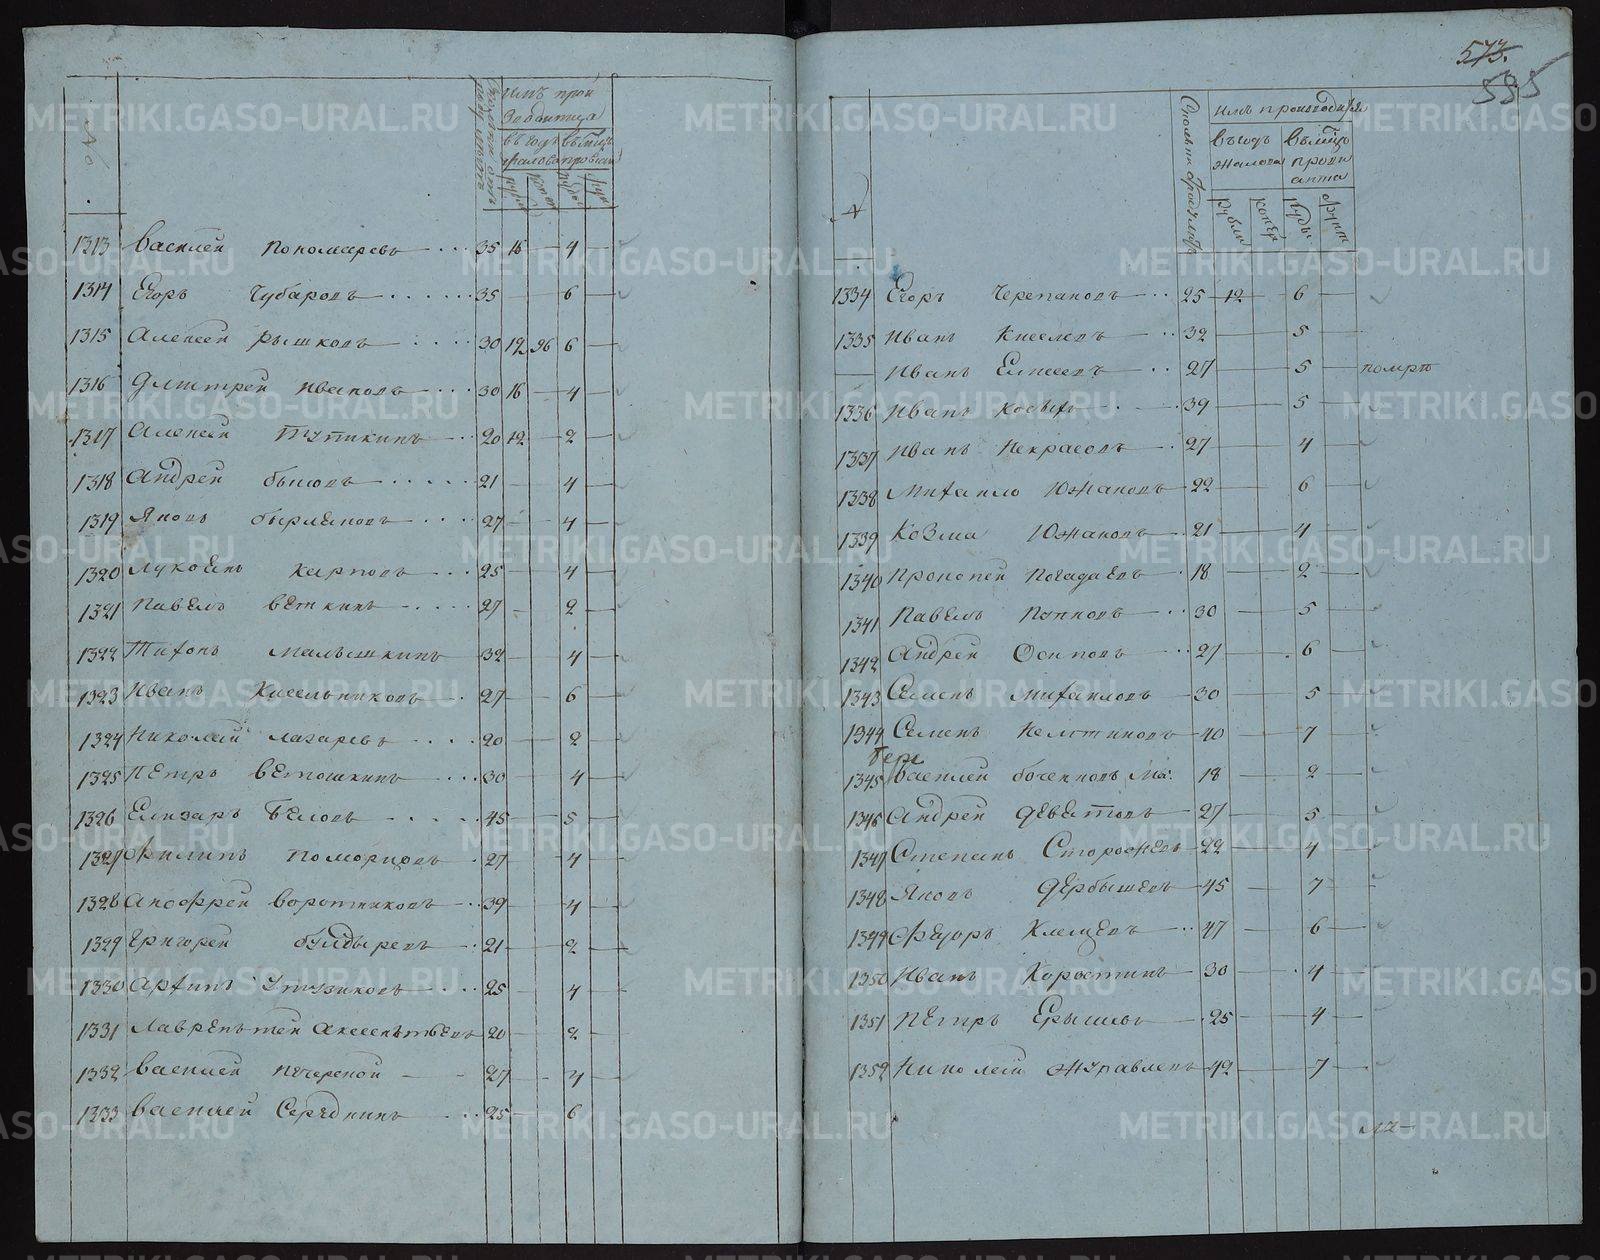 573.
585
№
имъ прои
зводитца
въ годъ
въ мцъ
жалова
провиан
рубли
копеи
пуды
фун
1313 Василей Пономаревъ 35 16 4
1314 Егоръ Чубаровъ 35 6
1315 Алексей Рышковъ 30 12 96 6
1316 Дмитрей Ивановъ 30 16 4
1317 Алексей Тупикинъ 20 12 2
1318 Андрей Быковъ 21 4
1319 Яковъ 27 4
1320 Лукоянъ Карповъ 25 4
1321 Павелъ Веткинъ 27 2
1322 Тихонъ Малышкинъ 32 4
1323 Иванъ Кисельниковъ 27 6
1324 Николай Лазаревъ 20 2
1325 Петръ Ветошкинъ 30 4
1326 Елизаръ Беловъ 45 5
1327 Филипъ 27 4
1328 Анофрей Воротниковъ 39 4
1329 Григорей Булдыревъ 21 2
1330 Архипъ Утузиковъ 25 4
1331 Лаврентей 20 2
1332 Василей Печереной 27 4
1333 Василей Середкинъ 25 6
№
имъ производитца
въ годъ
жалова
въ мцъ
прови
анта
рубли
копеи
пуды
фунт
1334 Егоръ Черепановъ 25 12 6
1335 Иванъ Киселевъ 32 5
Иванъ Елисеевъ 27 5 помре
1336 Иванъ Косыхъ 39 5
1337 Иванъ Некрасовъ 27 4
1338 Михаило Южаковъ 22 6
1339 Козма Южаковъ 21 4
1340 Прокопей Погадаевъ 18 2
1341 Павелъ Пупковъ 30 5
1342 Андрей Осиповъ 27 6
1343 Семенъ Михаиловъ 30 5
1344 Семенъ 40 7
1345 Василей 18 2
1346 Андрей Деветовъ 27 5
1347 Степанъ Сторожевъ 22 4
1348 Яковъ Дербышевъ 45 7
1349 Федоръ Клещевъ 47 6
1350 Иванъ Коростинъ 30 4
1351 Петръ 25 4
1352 Николай Журавлевъ 42 7